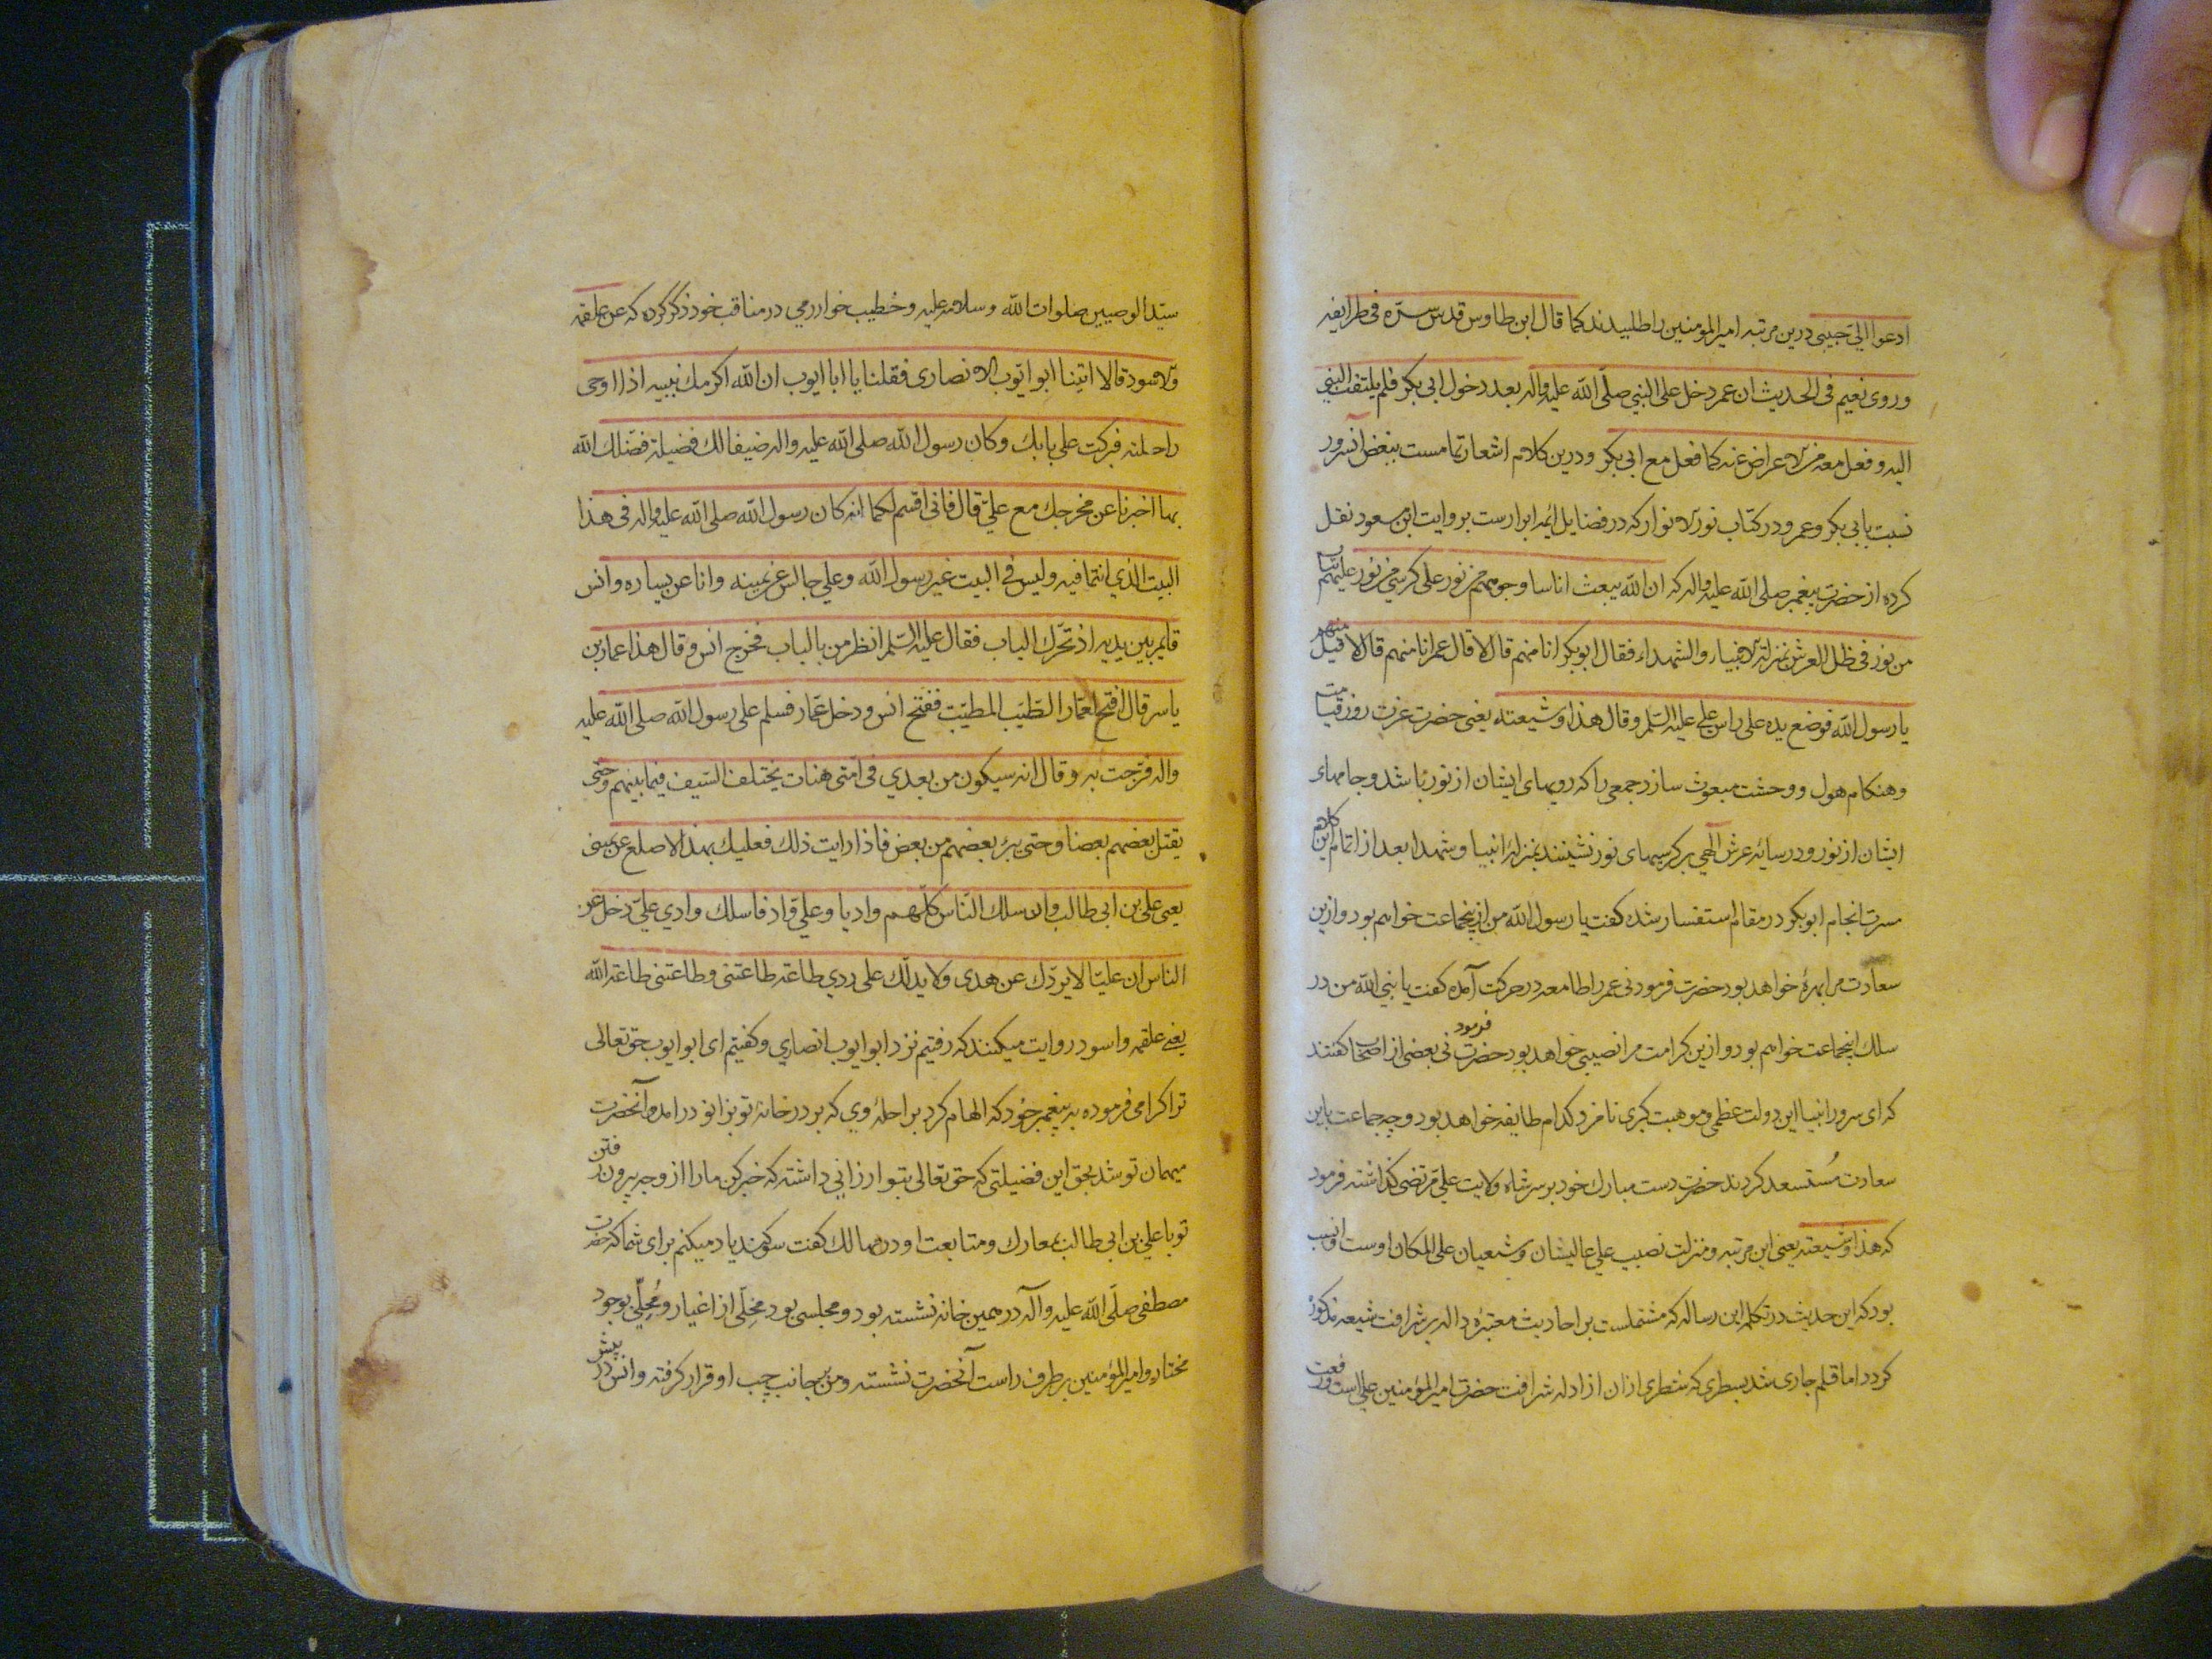 ادعوا الیّ حبیبی درین مرتبه امیرالمومنین را طلبیدند کما قال ابن طاوس قدس سرّه فی طرایفه
وروی نعیم فی الحدیث ان عمر دخل علی النبی صلّی الله علیه واله بعد دخول ابی بکر فلم یلتفت النبی
الیه وفعل معه من الاعراض عنه کما فعل مع ابی بکر ودرین کلام اشعار تمامست ببغض آنسرور
نسبت بابی بکر وعمر ودر کتاب نور الانوار که در فضایل ائمه ابرارست بروایت ابن مسعود نقل
کرده از حضرت پیغمبر صلی الله علیه واله که ان الله یبعث اناسا وجوههم من نور علی کرسی من نور علیهم ثیاب
من نور فی ظل العرش بمنزلة الانبیاء والشهداء فقال ابوبکر انا منهم قال لا قال عمر انا منهم قال لا قیل منهم
یا رسول الله فوضع یده علی راس علی علیه السّلم وقال هذا وشیعته یعنی حضرت عزت روز قیامت
وهنکام هول ووحشت مبعوث سازد جمعی را که رویهای ایشان از نور باشد وجامهاء
ایشان از نور ودر سایهٔ عرش الهی بر کرسیهای نور نشینند بمنزلهٔ انبیا وشهدا بعد از اتمام این کلام
مسرت انجام ابوبکر در مقام استفسار شده کفت یا رسول الله من ازینجماعت خواهم بود وازین
سعادت مرا بهرهٔ خواهد بود حضرت فرمود نی عمر را طامعه در حرکت آمده کفت یا نبی الله من در
سلك اینجماعت خواهم بود وازین کرامت مرا نصیبی خواهد بود حضرت فرمود نی بعضی از اصحاب کفتند
که ای سرور انبیا این دولت عظمی وموهبت کبری نامزد کدام طایفه خواهد بود وچه جماعت باین
سعادت مُستسعد کردند حضرت دست مبارك خود بر سر شاه ولایت علی مرتضی کذاشته فرمود
که هذا وشیعته یعنی این مرتبه ومنزلت نصیب علی عالیشان وشیعیان علی المکان اوست وانسب
بود که این حدیث در تکلمه این رساله که مشتملست بر احادیث معتبره داله بر شرافت شیعه مذکور
کردد اما قلم جاری شد بسطری که شطری ازان از ادله شرافت حضرت امیرالمؤمنین علی است ورفعت
سیّد الوصیین صلوات الله وسلامه علیه وخطیب خوارزمی در مناقب خود ذکر کرده که عن علقمه
والاسود قالا اتینا ابو ایّوب الانصاری فقلنا یا ابا ایوب ان الله اکرمك بنبیه اذ اوحی
راحلته فبرکت علی بابك وکان رسول الله صلی الله علیه واله ضیفا لك فضیلة فضّلك الله
بها اخبرنا عن مخرجك مع علیّ قال فانی اقسم لکما انه کان رسول الله صلی الله علیه واله فی هذا
البیت الذی انتما فیه ولیس فی البیت غیر رسول الله وعلی جالس عن یمینه وانا عن یساره وانس
قایم بین یدیه اذ تحّرك الباب فقال علیه السّلم انظر من بالباب فخرج انس وقال هذا عمار بن
یاسر قال افتح لعمّار الطّیب المطیّب ففتح انس ودخل عمّار فسلم علی رسول الله صلی الله علیه
واله فرّحبت به وقال انه سیکون من بعدی فی امّتی هنات یختلف السّیف فیما بینهم وحتی
یقتل بعضهم بعضا وحتی یبرَ بعضهم من بعض فاذا رایت ذلك فعلیك بهذا الاصلع عن یمینی
یعنی علی بن ابی طالب وان سلك النّاس کلّهم وادیا وعلیّ واد فاسلك وادی علیّ دخل عن
الناس ان علیّا لا یردّك عن هدی ولا یدلّك علی ردی طاعته طاعتنی وطاعتنی طاعة الله
یعنی علقمه واسود روایت میکنند که رفتیم نزد ابو ایوب انصاری وکفتیم ای ابو ایوب حق تعالی
ترا کرامی فرموده به پیغمبر خود که الهام کرد براحلهٔ وی که بر در خانهٔ تو بزانو درامد وآنحضرت
میهمان تو شد بحق این فضیلتی که حق تعالی بتو ارزانی داشته که خبر کن ما را از وجه بیرون رفتن
تو با علی بن ابی طالب بمعارك ومتابعت او در مهالك کفت سوکند یاد میکنم برای شما که حضرت
مصطفی صلّی الله علیه وآله در همین خانه نشسته بود ومجلسی بود مخلّی از اغیار ومُحلّی بوجود
مختار وامیرالمؤمنین بر طرف راست آنحضرت نشسته ومن بجانب چپ او قرار کرفته وانس در پیش